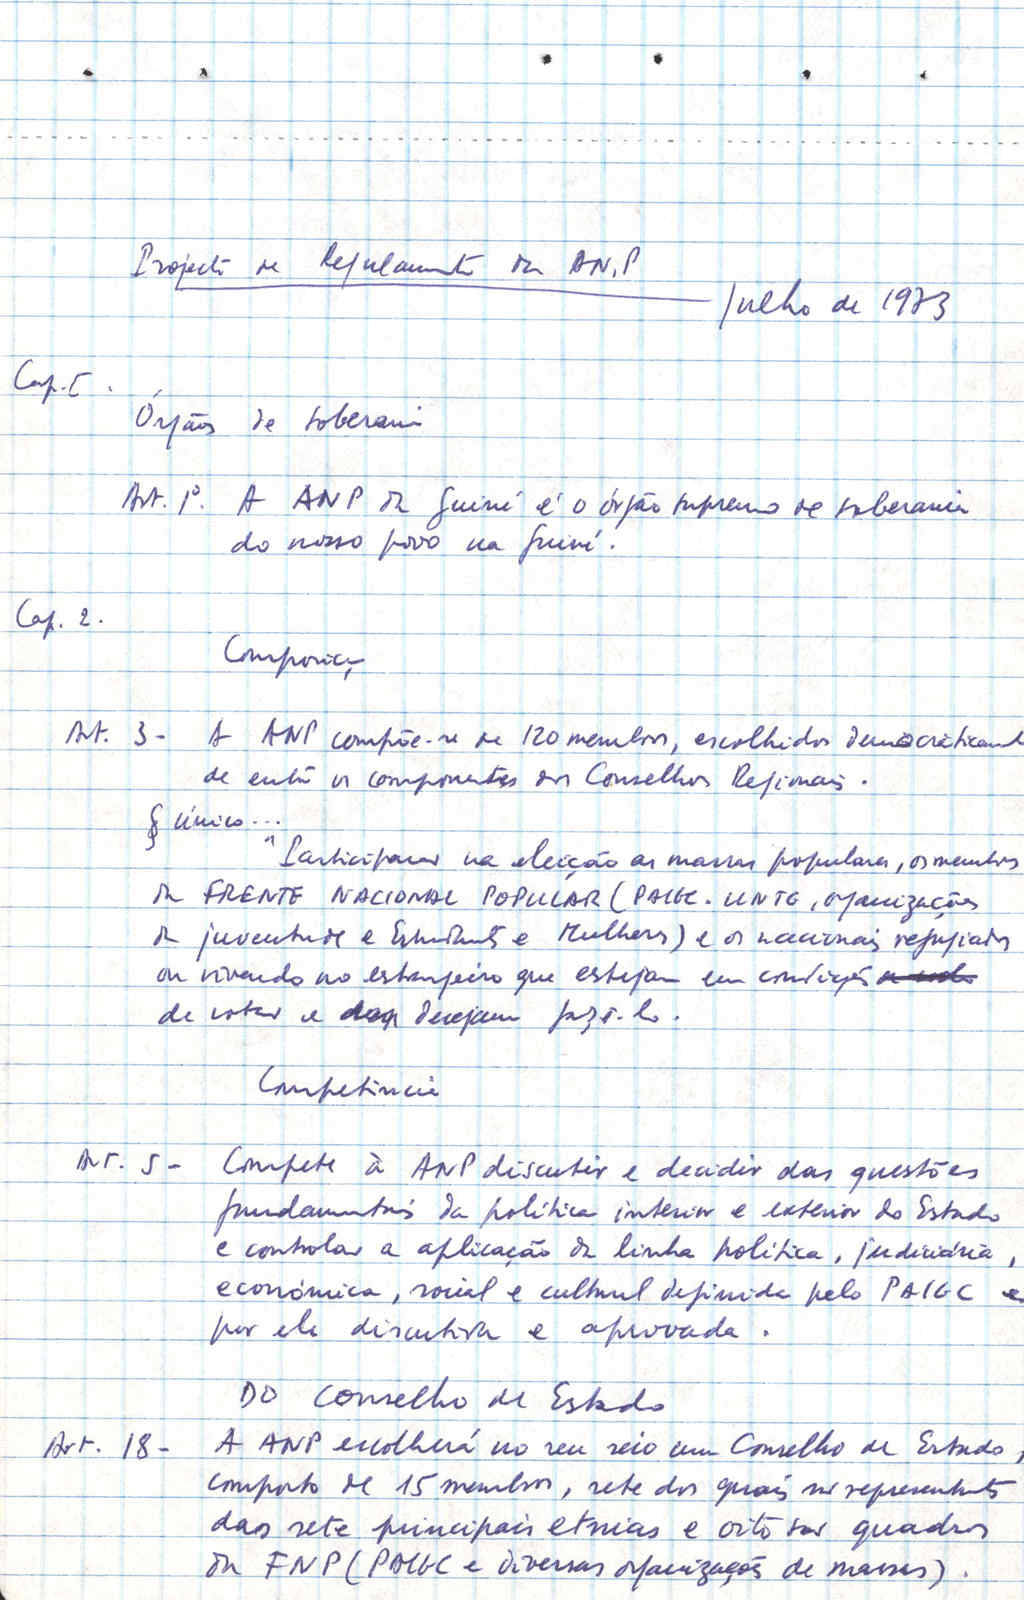 Projecto de Regulamento da AN.P
Julho de 1973
Cap. I.
Órgãos de soberania
Art. 1º. A ANP da Guiné é o órgão supremo de soberania
do nosso povo na Guiné.
Cap. 2.
Composição
Art. 3 - A ANP compõe-se de 120 membros, escolhidos democraticamente
de entre os componentes dos Conselhos Regionais.
§ único...
"Participam na eleição as massas populares, os membros
da FRENTE NACIONAL POPULAR (PAIGC. UNTG, organizações
da juventude e Estudantes e Mulheres) e os nacionais refugiados
ou vivendo no estrangeiro que estejam em condições
de votar e desejam fazê-lo.
Competência
Art. 5 - Compete à ANP discutir e decidir das questões
fundamentais da política interior e exterior do Estado
e controlar a aplicação da linha política, judiciária,
económica, social e cultural definida pelo PAIGC e
por ele discutida e aprovada.
DO Conselho de Estado
Art. 18 - A ANP escolherá no seu seio um Conselho de Estado,
composto de 15 membros, sete dos quais são representantes
das sete principais etnias e oito são quadros
da FNP (PAIGC e diversas organizações de massas).